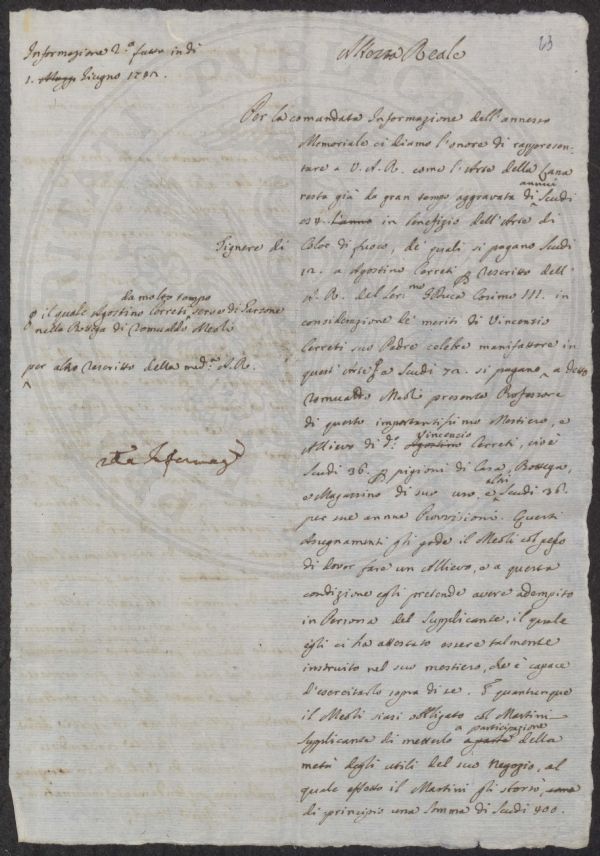 63
Informazione 2.a fatta in di
1. Maggi Giugno 1782.
Altezza Reale
Per la comandata Informazione dell'annesso
Memoriale ci diamo l'onore di rappresen-
tare a V. A. R. come l'Arte della Lana
resta già da gran tempo aggravata di annui Scudi
84. l'anno in benefizio dell'Arte di
Tignere di
Color di fuoco, de' quali si pagano Scudi
12. a Agostino Cerreti p Rescritto dell'
A. R. del Ser.mo GDuca Cosimo III. in
da molto tempo
il quale Agostino Cerreti serve di Garzone
nella Bottega di Romualdo Meoli
considerazione de' meriti di Vincenzio
Cerreti suo Padre celebre manifattore in
per altro Rescritto della med.a A. R.
quest'arte, e Scudi 72. si pagano a detto
Romualdo Meoli presente Professore
di questo importantissimo Mestiero, e
Vincenzio
Allievo di d.o Agostino Cerreti, cioè
Scudi 36. p pigioni di Casa, Bottega,
e Magazzino di suo uso, e altri Scudi 36.
per sue annue Provvisioni. Questi
Assegnamenti gli gode il Meoli col peso
di dover fare un Allievo, e a questa
condizione egli pretende avere adempito
in Persona del Supplicante, il quale
egli ci ha attestato essere talmente
instruito nel suo mestiero, che è capace
d'esercitarlo sopra di se. E quantunque
il Meoli siasi obbligato col Martini
a participazione
Supplicante di metterlo a parte della
metà degli utili del suo Negozio, al
quale effetto il Martini gli sborsò,
di principio una Somma di Scudi 400.